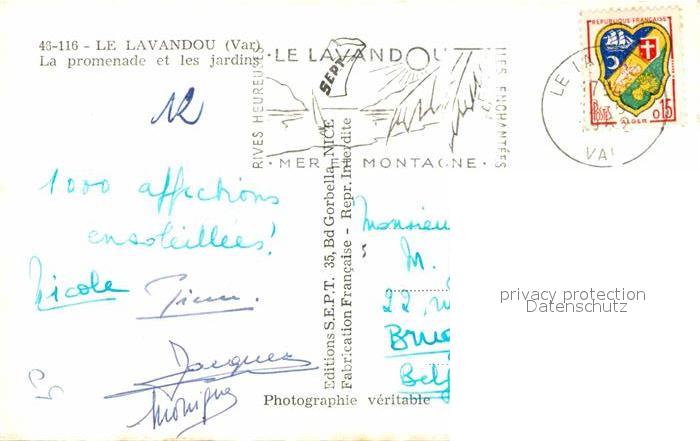 46-116 - LE LAVANDOU (Var)
La promenade et les jardins
RIVES HEUREUSES
· LE LAVANDOU
ILES ENCHANTÉES
· MER ET MONTAGNE ·
SEPT
REPUBLIQUE FRANÇAISE
POSTES
ALGER
0,15
LE LA
VAR
1000 affections
ensoleillées!
Nicole
Pierre.
Jacques
Monique
Editions S.E.P.T. 35, Bd Gorbella, NICE
Fabrication Française - Repr. Interdite
Monsieu
M.
22, ru
Brux
Belg
privacy protection
Datenschutz
Photographie véritable